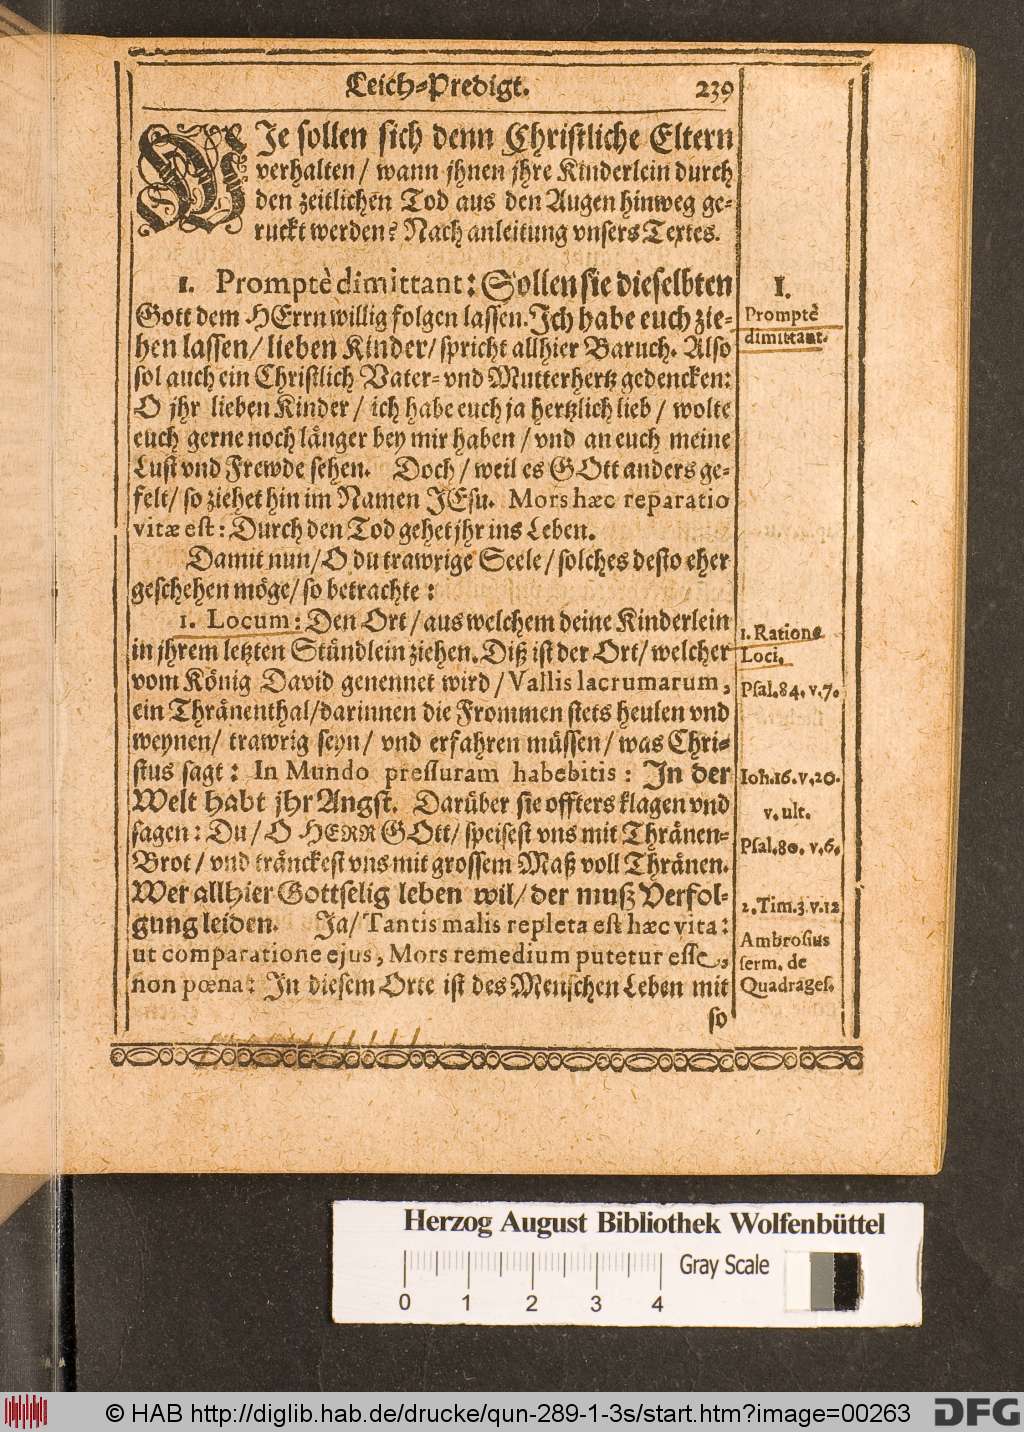 Leich-Predigt. 239
WJe sollen sich denn Christliche Eltern
verhalten / wann jhnen jhre Kinderlein durch
den zeitlichen Tod aus den Augen hinweg ge-
ruckt werden? Nach anleitung vnsers Textes.
1. Promptè dimittant: Sollen sie dieselbten
Gott dem HErrn willig folgen lassen. Jch habe euch zie-
hen lassen / lieben Kinder / spricht allhier Baruch. Also
sol auch ein Christlich Vater- vnd Mutterhertz gedencken:
O jhr lieben Kinder / ich habe euch ja hertzlich lieb / wolte
euch gerne noch länger bey mir haben / vnd an euch meine
Lust vnd Frewde sehen. Doch / weil es GOtt anders ge-
felt / so ziehet hin im Namen JEsu. Mors hæc reparatio
vitæ est: Durch den Tod gehet jhr ins Leben.
Damit nun / O du trawrige Seele / solches desto eher
geschehen möge / so betrachte:
1. Locum: Den Ort / aus welchem deine Kinderlein
in jhrem letzten Stündlein ziehen. Diß ist der Ort / welcher
vom König David genennet wird / Vallis lacrumarum,
ein Thränenthal / darinnen die Frommen stets heulen vnd
weynen / trawrig seyn / vnd erfahren müssen / was Chri-
stus sagt: In Mundo pressuram habebitis: Jn der
Welt habt jhr Angst. Darüber sie offters klagen vnd
sagen: Du / O HERR GOtt / speisest vns mit Thränen-
Brot / vnd tränckest vns mit grossem Maß voll Thränen.
Wer allhier Gottselig leben wil / der muß Verfol-
gung leiden. Ja / Tantis malis repleta est hæc vita:
ut comparatione ejus, Mors remedium putetur esse,
non pœna: Jn diesem Orte ist des Menschen Leben mit
so
I.
Promptè
dimittant.
1. Ratione
Loci.
Psal. 84. v. 7.
Ioh. 16. v. 20.
v. ult.
Psal. 80. v. 6.
2. Tim. 3. v. 12
Ambrosius
serm. de
Quadrages.
Herzog August Bibliothek Wolfenbüttel
Gray Scale
0 1 2 3 4
© HAB http://diglib.hab.de/drucke/qun-289-1-3s/start.htm?image=00263
DFG